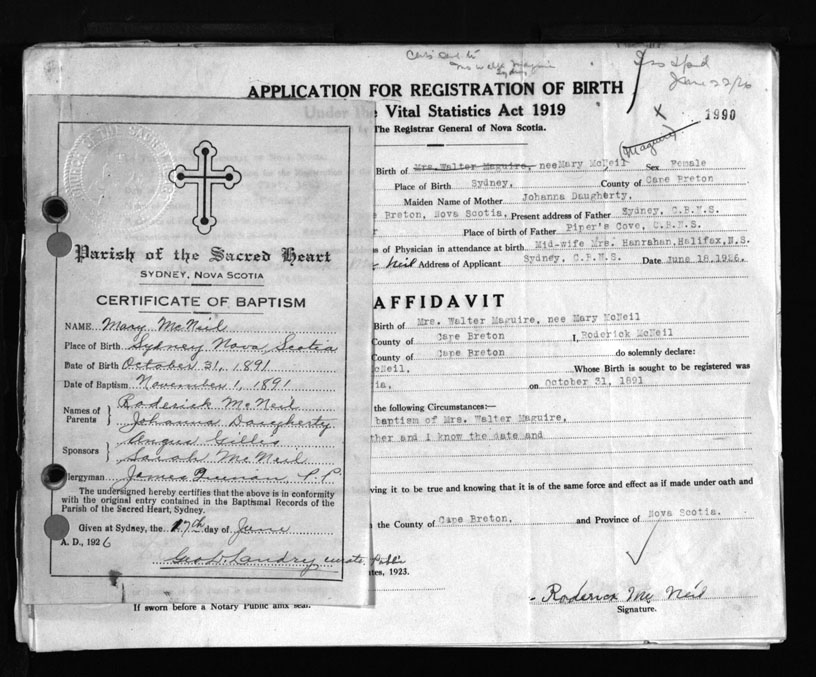 APPLICATION FOR REGISTRATION OF BIRTH
Under Vital Statistics Act 1919
The Registrar General of Nova Scotia.
X
1990
(Maguire)
Birth of Mrs. Walter Maguire, nee Mary McNeil Sex Female
Place of Birth Sydney, County of Cape Breton
Maiden Name of Mother Johanna Daugherty,
Breton, Nova Scotia, Present address of Father Sydney, C.B.N.S.
Place of birth of Father Piper's Cove, C.B.N.S.
of Physician in attendance at birth Mid-wife Mrs. Hanrahan, Halifax, N.S.
Mc Neil Address of Applicant Sydney, C.B.N.S. Date June 18, 1926.
AFFIDAVIT
Birth of Mrs. Walter Maguire, nee Mary McNeil
County of Cape Breton I, Roderick McNeil
County of Cape Breton do solemnly declare:
McNeil, Whose Birth is sought to be registered was
on October 31, 1891
the following Circumstances:—
baptism of Mrs. Walter Maguire,
and I know the date and
it to be true and knowing that it is of the same force and effect as if made under oath and
the County of Cape Breton, and Province of Nova Scotia.
1923.
If sworn before a Notary Public seal.
Roderick Mc Neil
Signature.
Parish of the Sacred Heart
SYDNEY, NOVA SCOTIA
CERTIFICATE OF BAPTISM
NAME Mary McNeil
Place of Birth Sydney Nova Scotia
Date of Birth October 31, 1891
Date of Baptism November 1, 1891
Names of Parents } Roderick McNeil
Johanna Daugherty
Sponsors } Angus Gillis
Sarah McNeil
Clergyman James Quinan, P.P.
The undersigned hereby certifies that the above is in conformity
with the original entry contained in the Baptismal Records of the
Parish of the Sacred Heart, Sydney.
Given at Sydney, the 17th day of June
A. D., 1926
Geo Landry curate